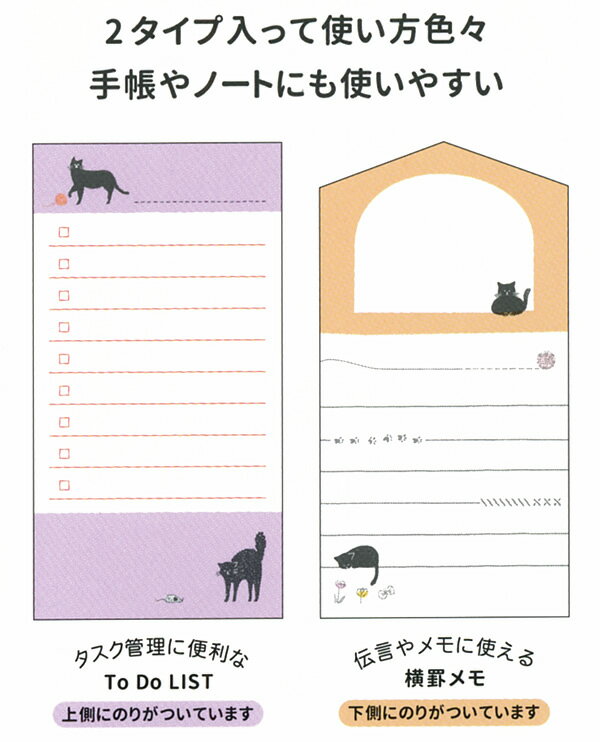 2タイプ入って使い方色々
手帳やノートにも使いやすい
タスク管理に便利な
To Do LIST
上側にのりがついています
伝言やメモに使える
横罫メモ
下側にのりがついています